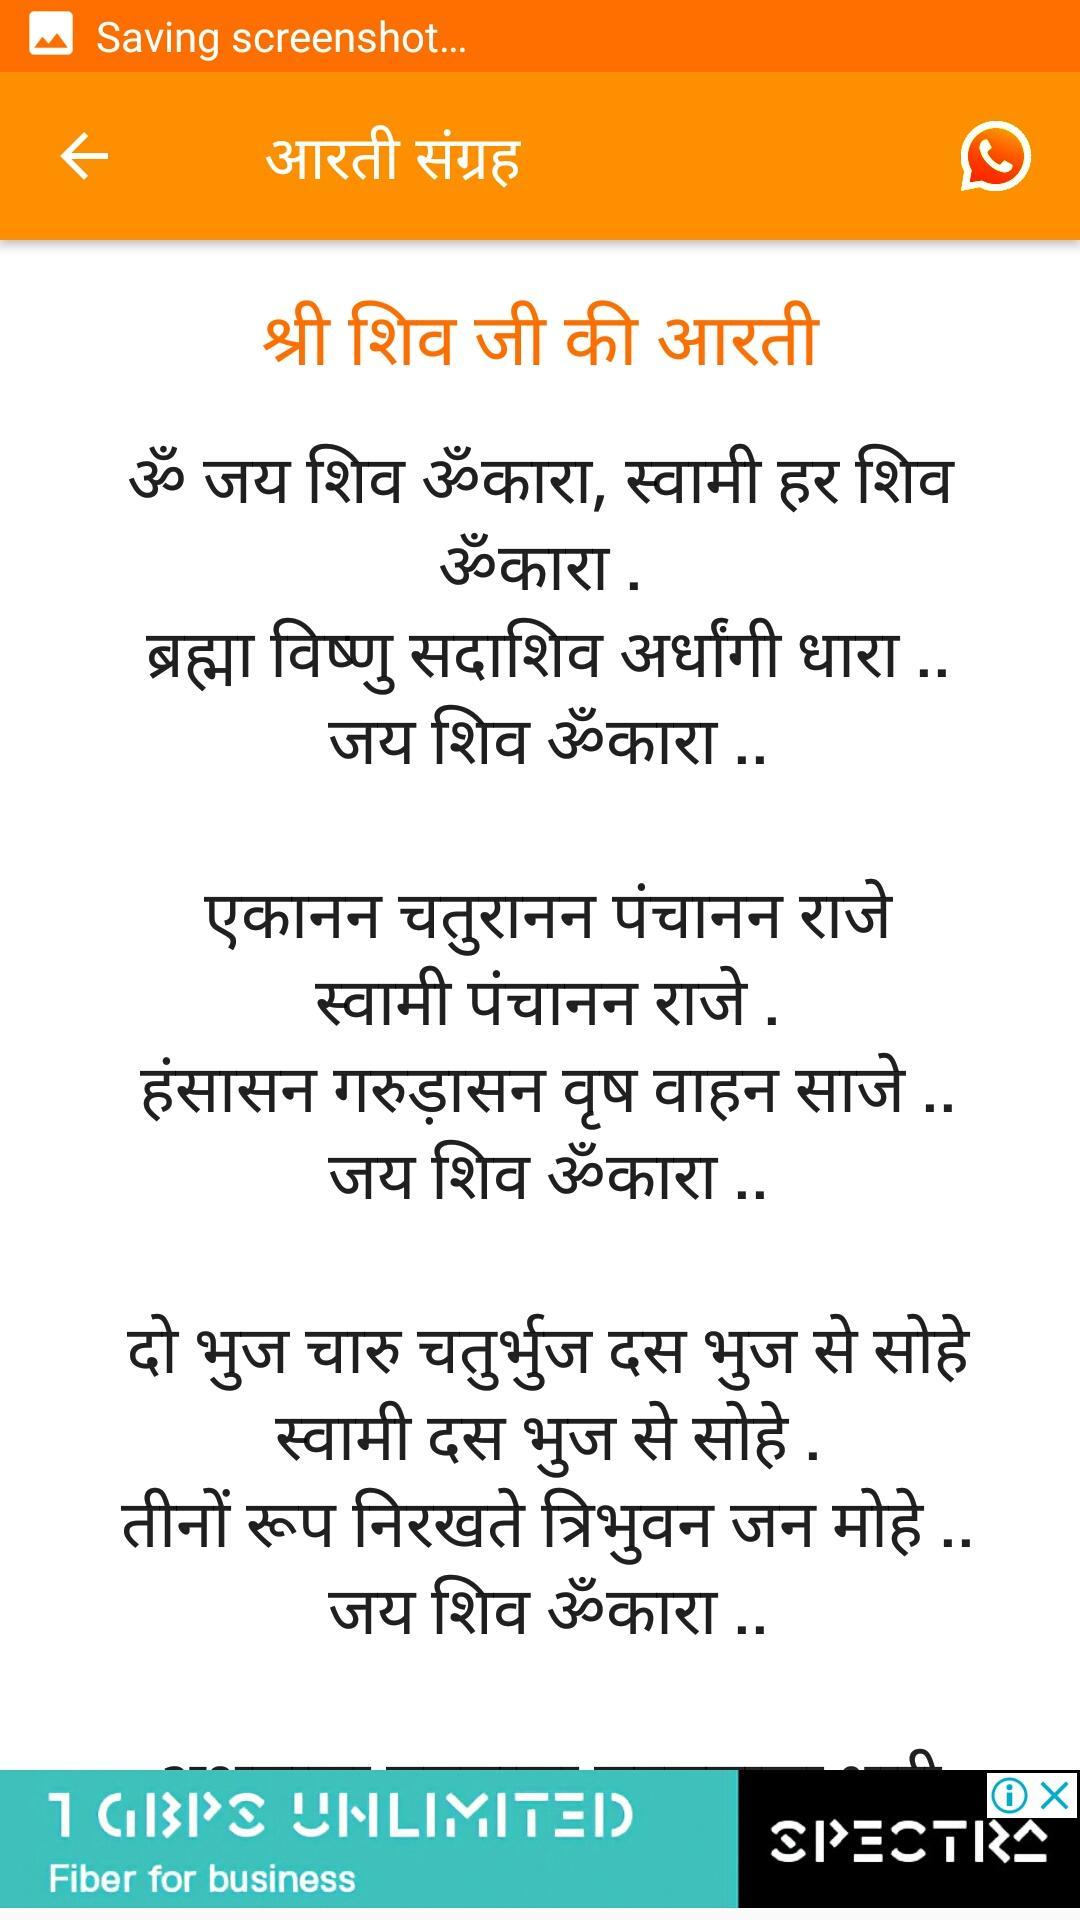 Saving screenshot...
आरती संग्रह
श्री शिव जी की आरती
ॐ जय शिव ॐकारा, स्वामी हर शिव
ॐकारा .
ब्रह्मा विष्णु सदाशिव अर्धांगी धारा ..
जय शिव ॐकारा ..
एकानन चतुरानन पंचानन राजे
स्वामी पंचानन राजे .
हंसासन गरुड़ासन वृष वाहन साजे ..
जय शिव ॐकारा ..
दो भुज चारु चतुर्भुज दस भुज से सोहे
स्वामी दस भुज से सोहे .
तीनों रूप निरखते त्रिभुवन जन मोहे ..
जय शिव ॐकारा ..
1 GBPS UNLIMITED
Fiber for business
SPECTRA